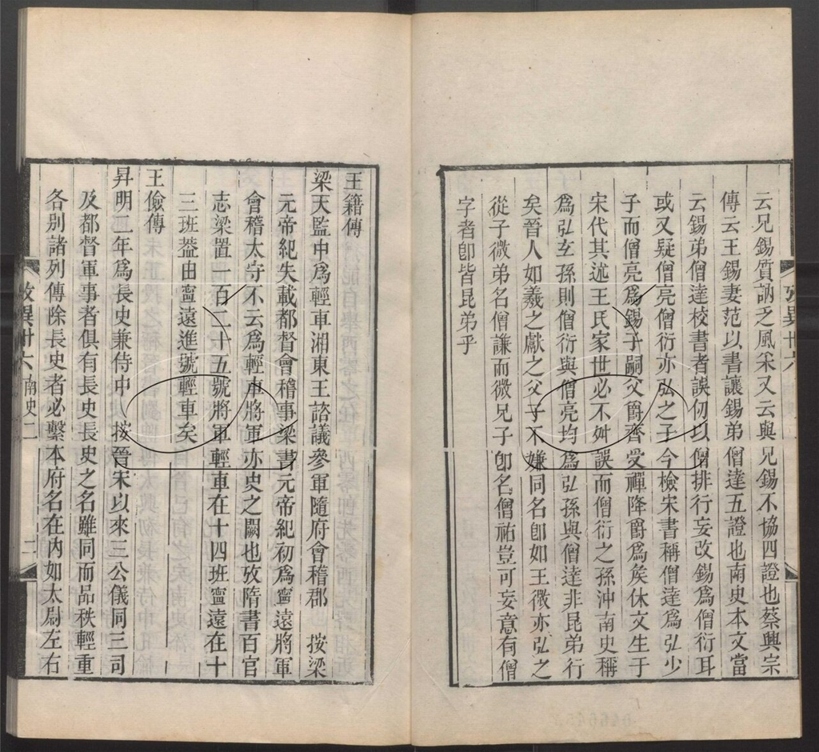 云兄錫質訥乏風采又云與兄錫不協四證也蔡興宗
傳云王錫妻范以書讓錫弟僧達五證也南史本文當
云錫弟僧達校書者誤仞以僧排行妄改錫為僧衍耳
或又疑僧亮僧衍亦弘之子今檢宋書稱僧達為弘少
子而僧亮為錫子嗣父爵齊受禪降爵為矦休文生于
宋代其述王氏家世必不舛誤而僧衍之孫沖南史稱
為弘玄孫則僧衍與僧亮均為弘孫與僧達非昆弟行
矣晉人如羲之獻之父子不嫌同名卽如王微亦弘之
從子微弟名僧謙而微兄子卽名僧祐豈可妄意有僧
字者卽皆昆弟乎
攷異卅六
王籍傳
梁天監中為輕車湘東王諮議參軍隨府會稽郡 按梁
元帝紀失載都督會稽事梁書元帝紀初為寧遠將軍
會稽太守不云為輕車將軍亦史之闕也攷隋書百官
志梁置一百二十五號將軍輕車在十四班寧遠在十
三班葢由寧遠進號輕車矣
王儉傳
昇明二年為長史兼侍中 按晉宋以來三公儀同三司
及都督軍事者俱有長史長史之名雖同而品秩輕重
各別諸列傳除長史者必繫本府名在內如太尉左右
攷異卅六 南史二 二